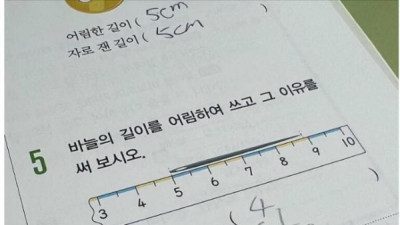 어림한 길이 ( 5cm
자로 잰 길이 ( 5cm
5 바늘의 길이를 어림하여 쓰고 그 이유를
써 보시오.
3 4 5 6 7 8 9 10
( 4 )